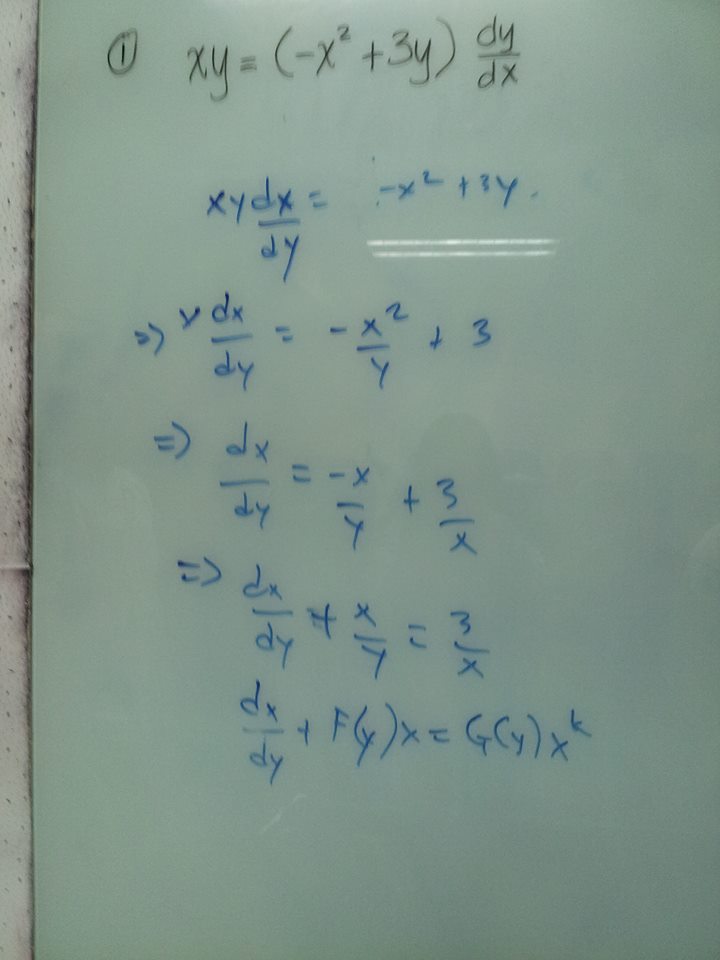 ① xy = (-x² + 3y) dy/dx
xy dx/dy = -x² + 3y.
=> x dx/dy = - x²/y + 3
=> dx/dy = -x/y + 3/x
=> dx/dy + x/y = 3/x
dx/dy + F(y)x = G(y)x^k